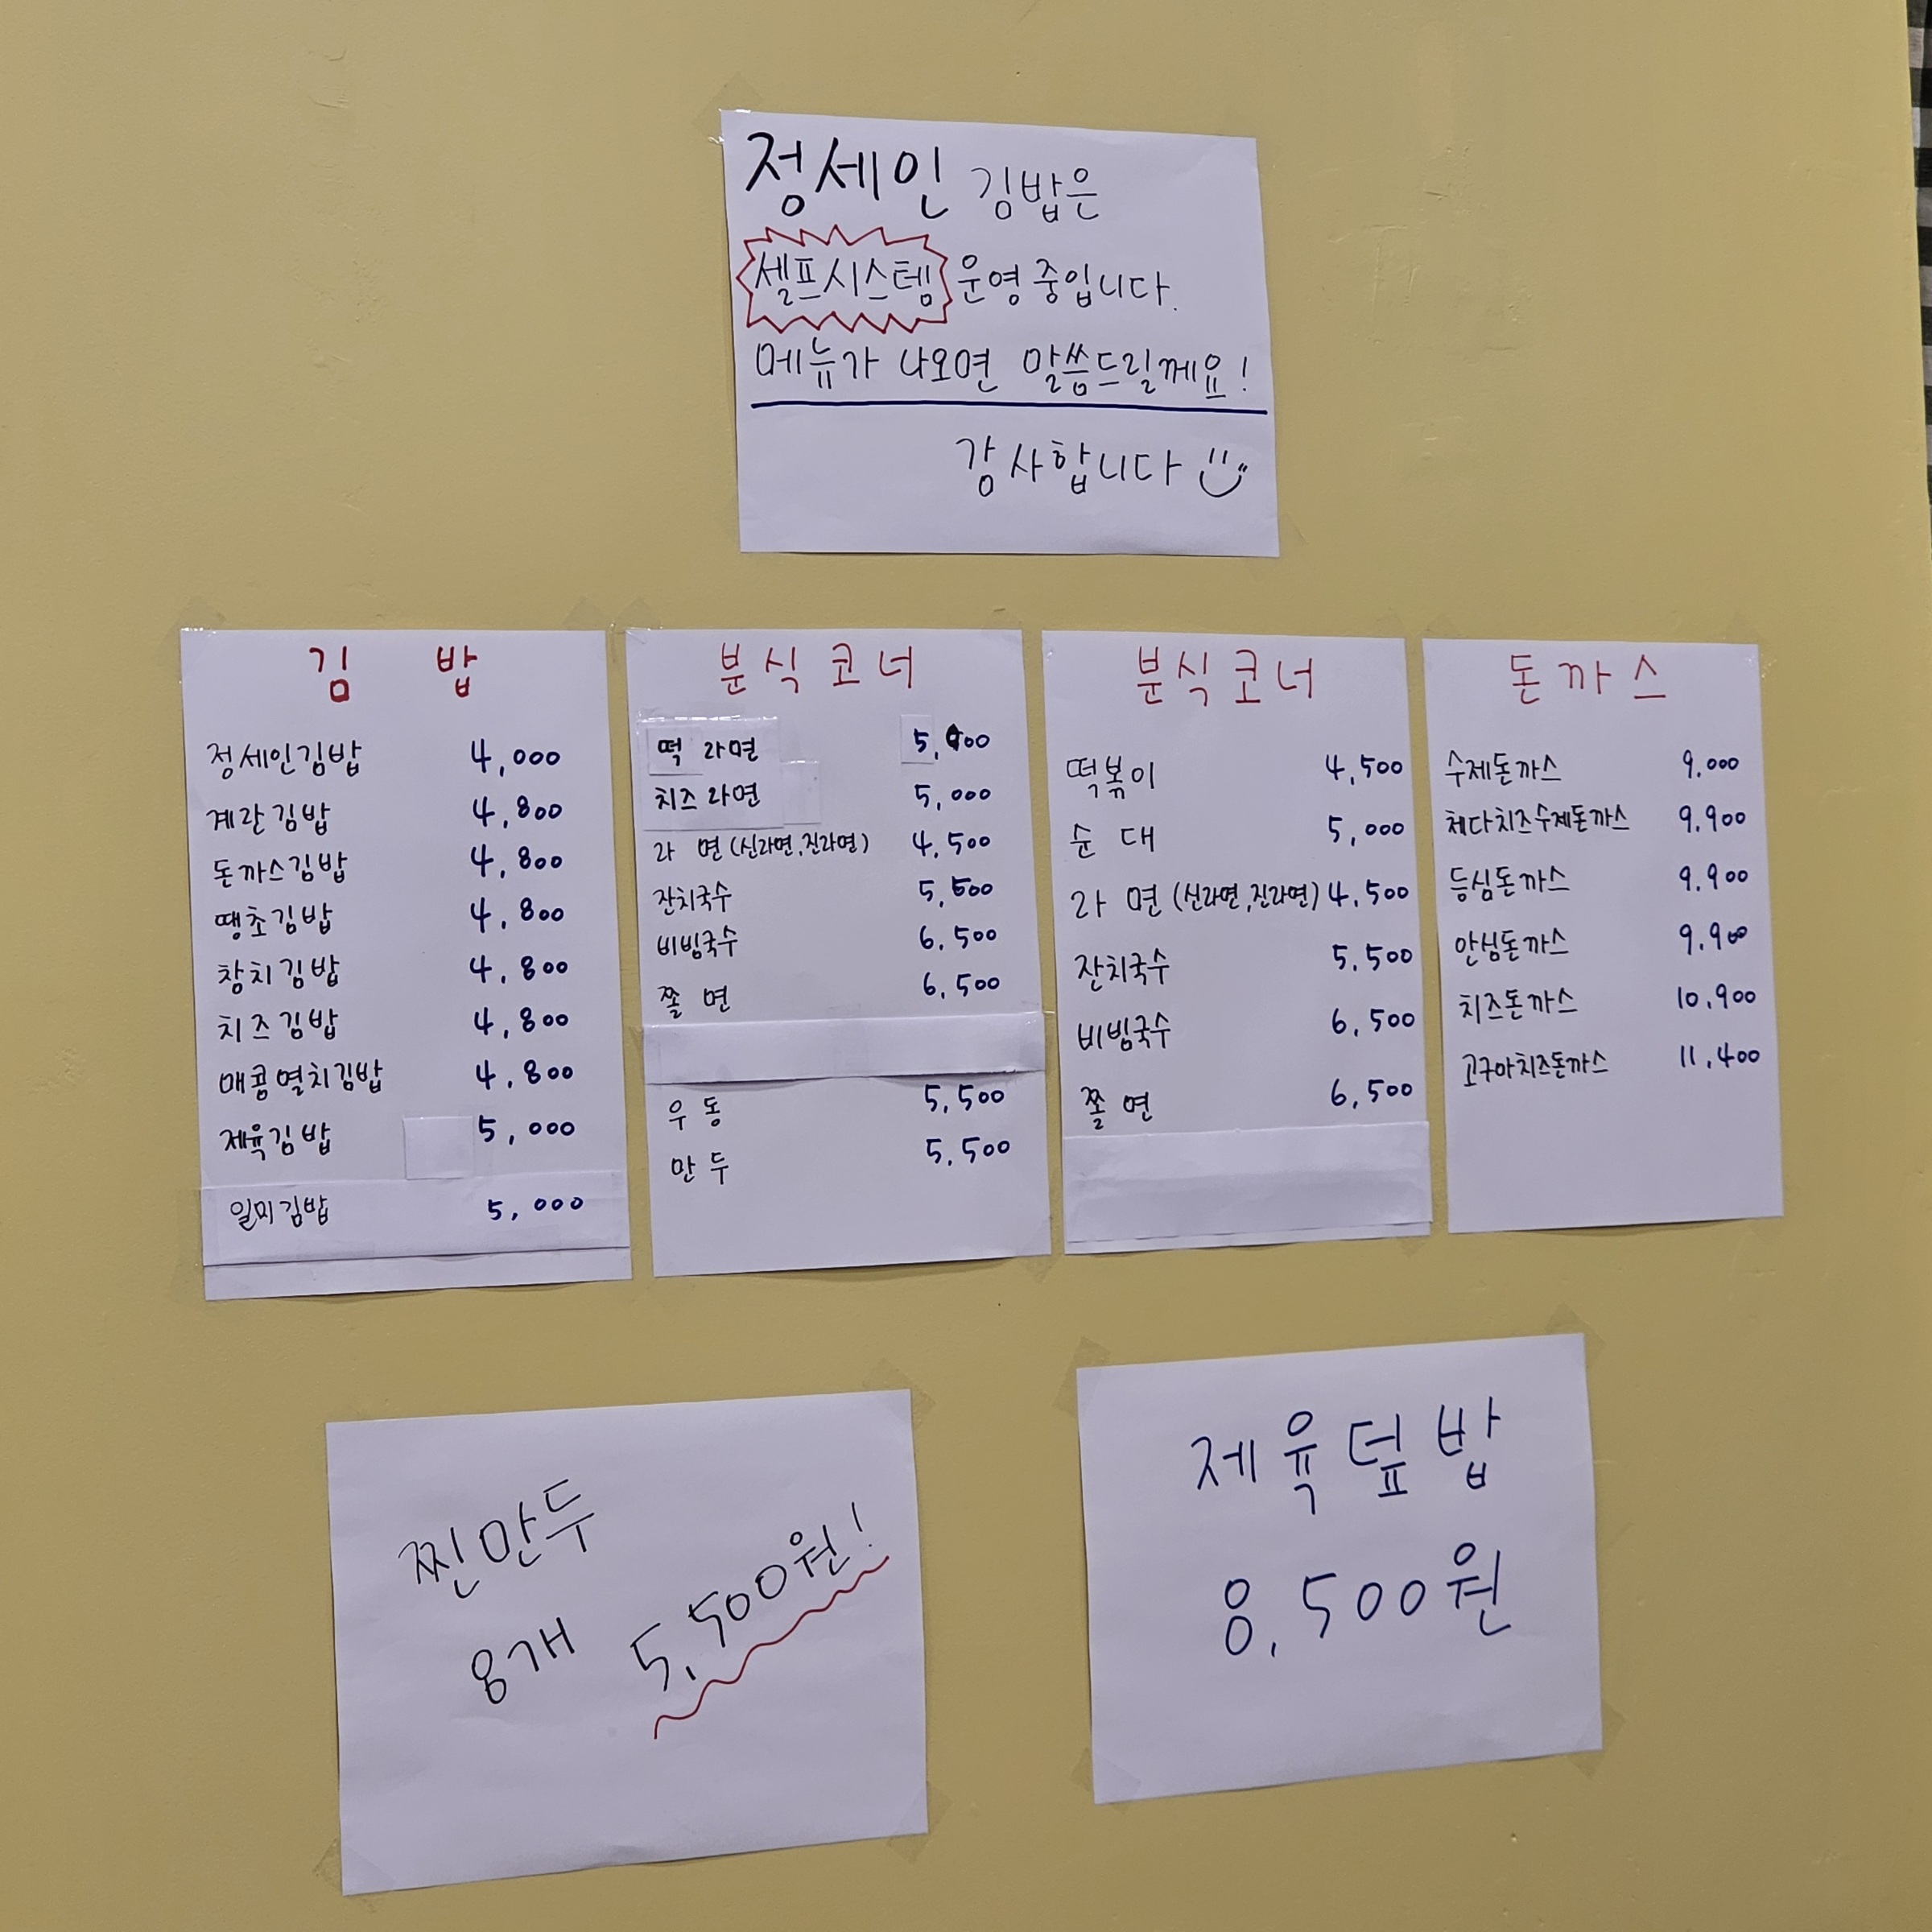 정세인 김밥은
셀프시스템 운영중입니다.
메뉴가 나오면 말씀드릴께요!
감사합니다
김 밥
정세인김밥 4,000
계란김밥 4,800
돈까스김밥 4,800
땡초김밥 4,800
참치김밥 4,800
치즈김밥 4,800
매콤멸치김밥 4,800
제육김밥 5,000
일미김밥 5,000
분식코너
떡 라면
치즈라면 5,000
라 면(신라면,진라면) 4,500
잔치국수 5,500
비빔국수 6,500
쫄 면 6,500
우 동 5,500
만 두 5,500
분식코너
떡볶이 4,500
순 대 5,000
라 면(신라면,진라면) 4,500
잔치국수 5,500
비빔국수 6,500
쫄 면 6,500
돈까스
수제돈까스 9,000
체다치즈수제돈까스 9,900
등심돈까스 9,900
안심돈까스 9,900
치즈돈까스 10,900
고구마치즈돈까스 11,400
찐만두
8개 5,500원!
제육덮밥
8,500원